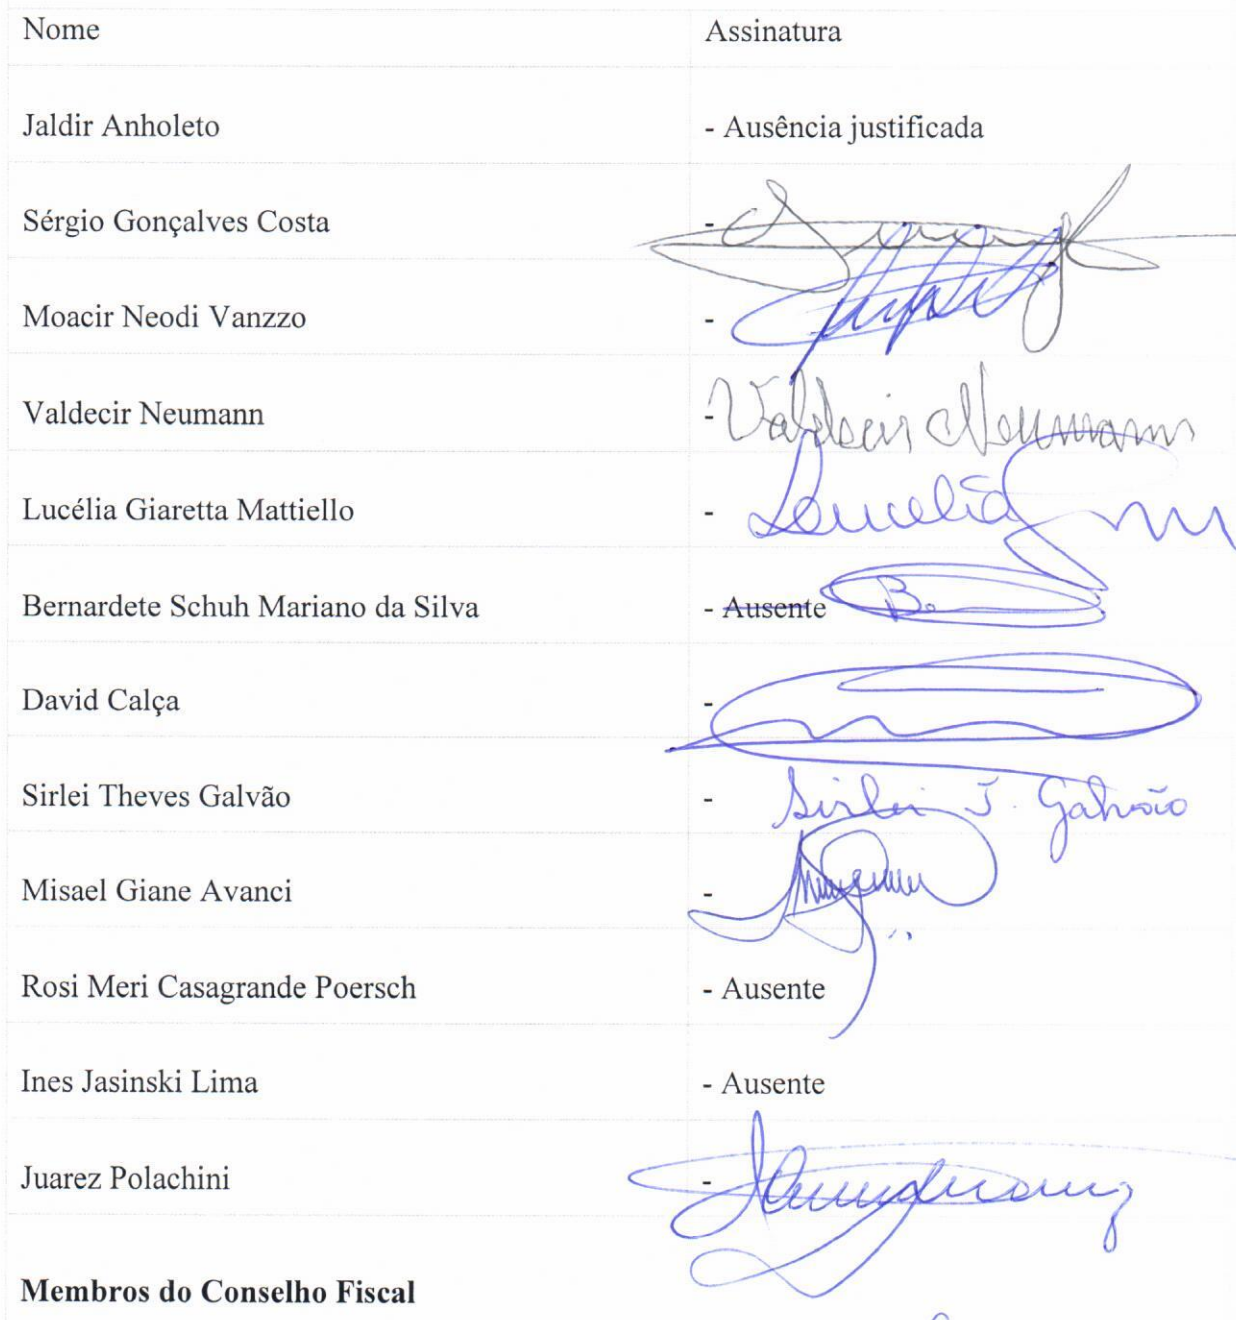 Nome Assinatura
Jaldir Anholeto - Ausência justificada
Sérgio Gonçalves Costa -
Moacir Neodi Vanzzo -
Valdecir Neumann - Valdecir Neumann
Lucélia Giaretta Mattiello - Lucélia
Bernardete Schuh Mariano da Silva - Ausente B.
David Calça -
Sirlei Theves Galvão - Sirlei T. Galvão
Misael Giane Avanci -
Rosi Meri Casagrande Poersch - Ausente
Ines Jasinski Lima - Ausente
Juarez Polachini -
Membros do Conselho Fiscal